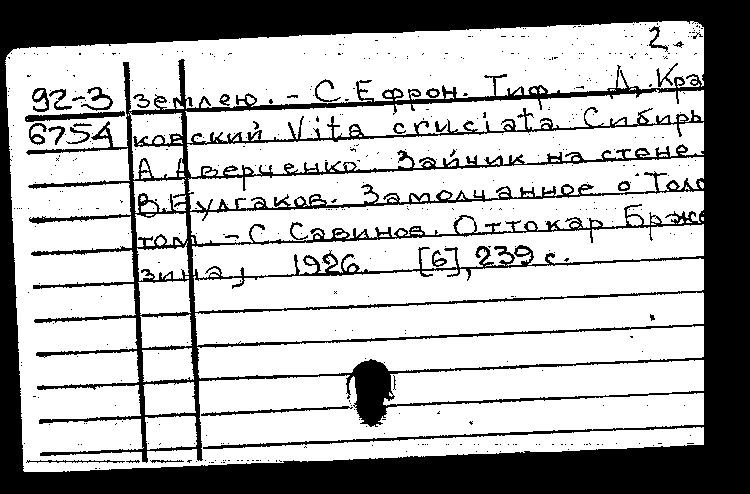 2.
92-3 землею. - С.Ефрон. Тиф. - Д. Кра
6754 ковский. Vita cruciata. Сибирь
А.Аверченко. Зайчик на стене.
В.Булгаков. Замолчанное о Толс
том. - С.Савинов. Оттокар Брже
зина, 1926. [6], 239 с.